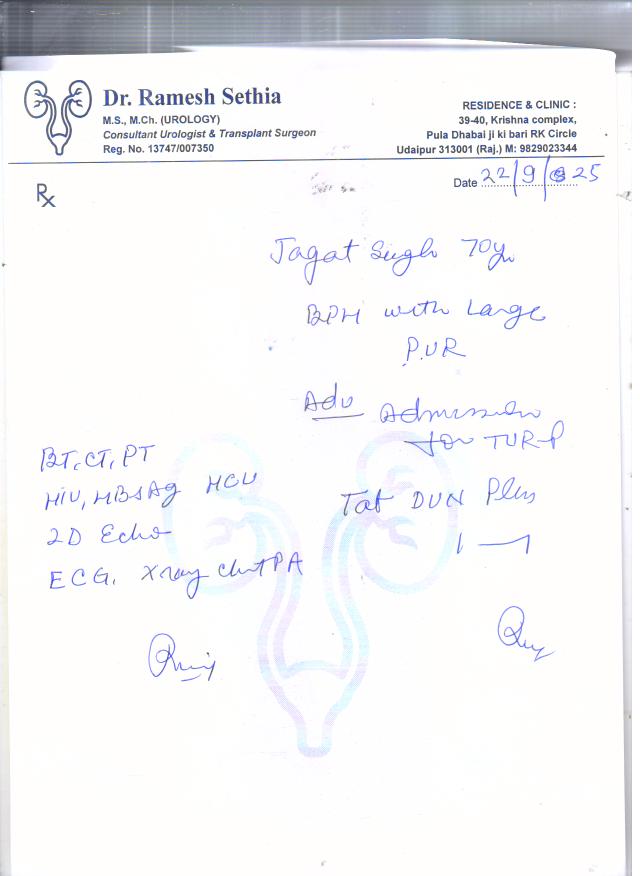 Dr. Ramesh Sethia
M.S., M.Ch. (UROLOGY)
Consultant Urologist & Transplant Surgeon
Reg. No. 13747/007350
RESIDENCE & CLINIC :
39-40, Krishna complex,
Pula Dhabai ji ki bari RK Circle
Udaipur 313001 (Raj.) M: 9829023344
Rx
Date 22/9/25
Jagat Singh 70yr
BPH with Large
P.UR
Adv Admission
for TUR-P
BT, CT, PT
HIV, HBsAg HCV
2D Echo
ECG, Xray Chest PA
Tab Plus
1 — 1